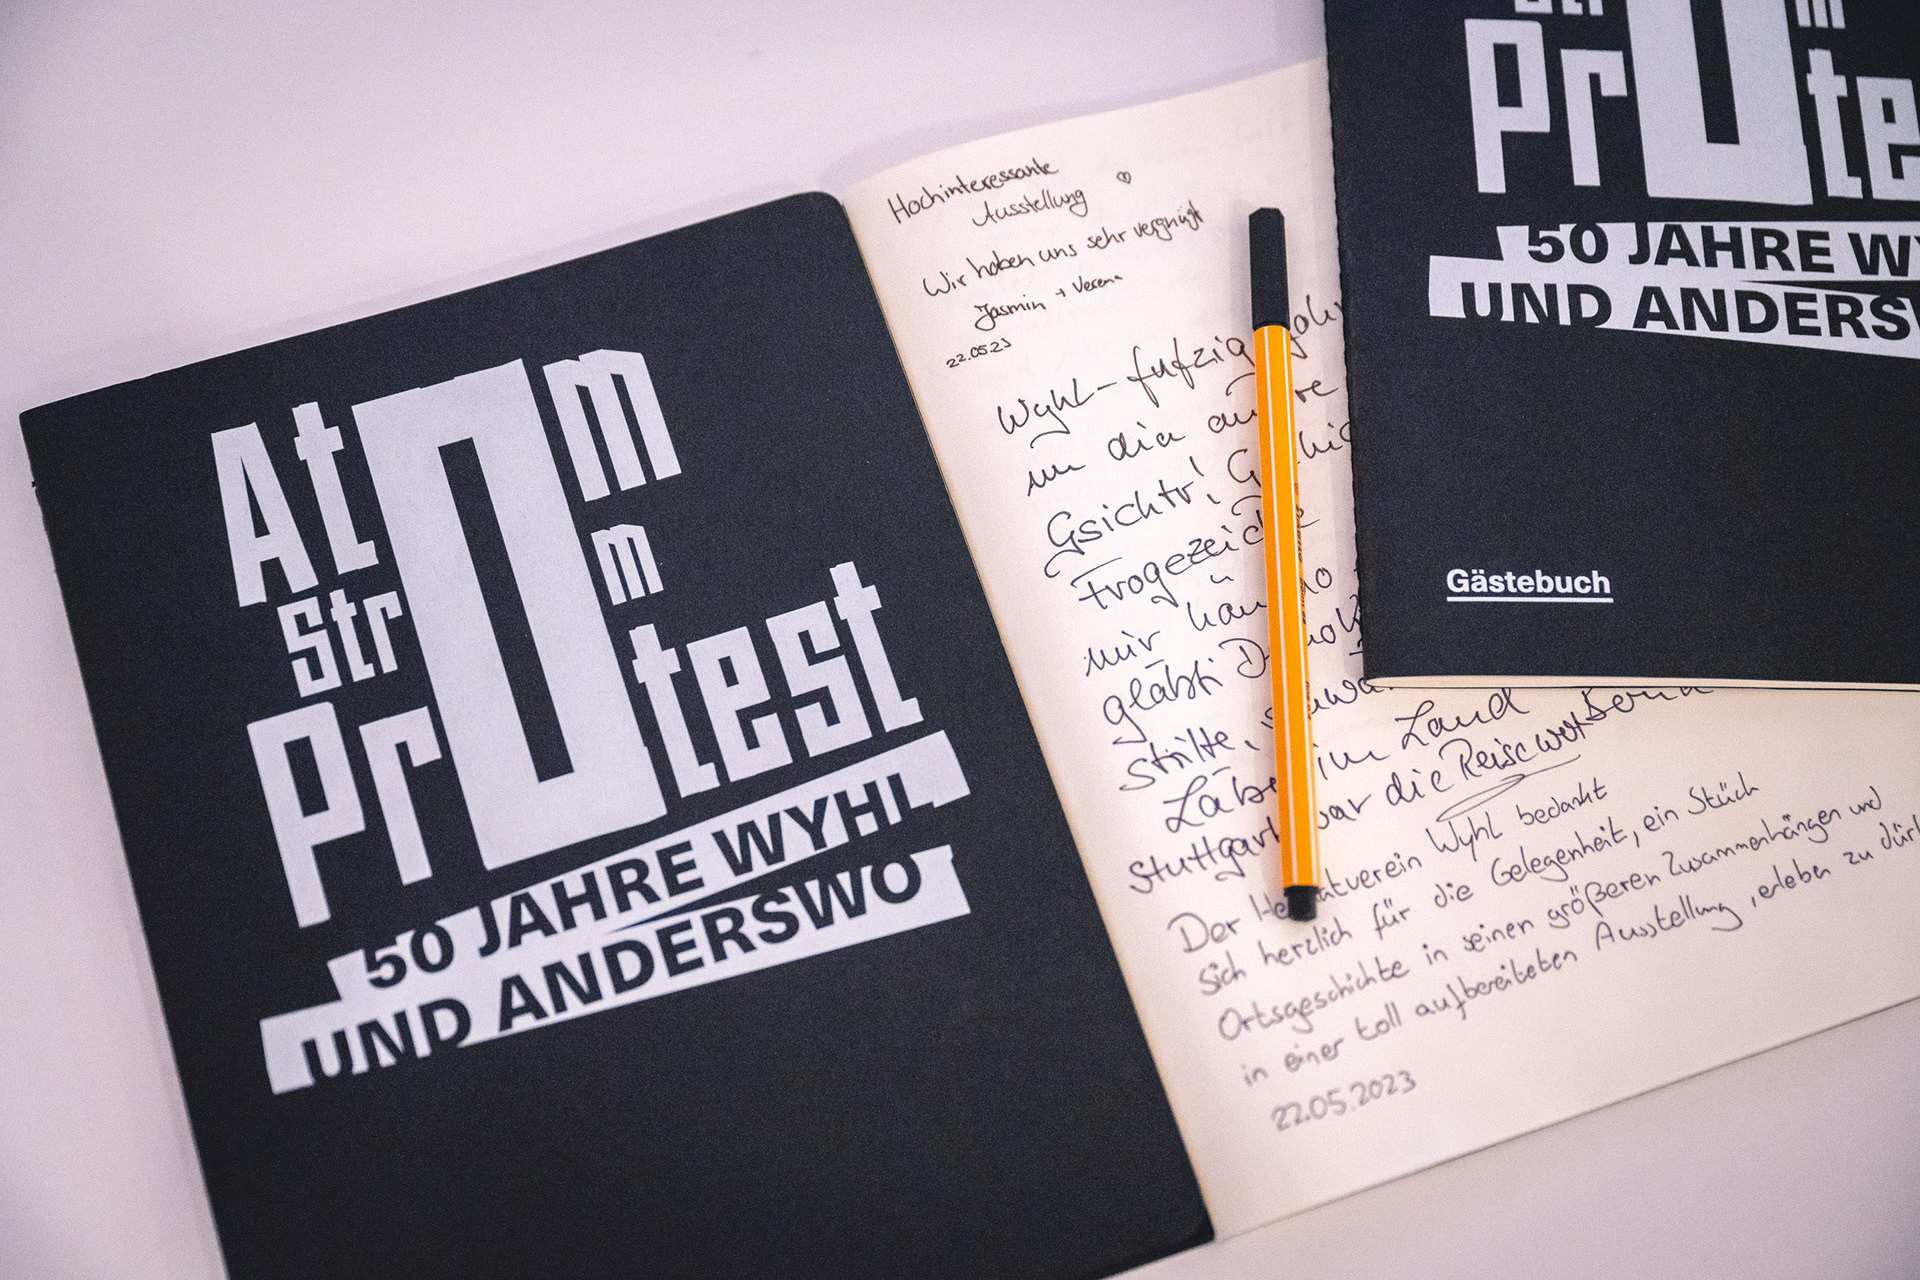 Atom
Strom
Protest
50 JAHRE WYHL
UND ANDERSWO
Hochinteressante
Ausstellung ♡
Wir haben uns sehr vergnügt
Jasmin + Verena
22.05.23
Wyhl - fufzig
in dia
Gsichtr!
mir
im Land
Stuttgart war die Reise wert
Der Heimatverein Wyhl bedankt
sich herzlich für die Gelegenheit, ein Stück
Ortsgeschichte in seinen größeren Zusammenhängen und
in einer toll aufbereiteten Ausstellung, erleben zu
22.05.2023
Prote
50 JAHRE W
UND ANDERS
Gästebuch